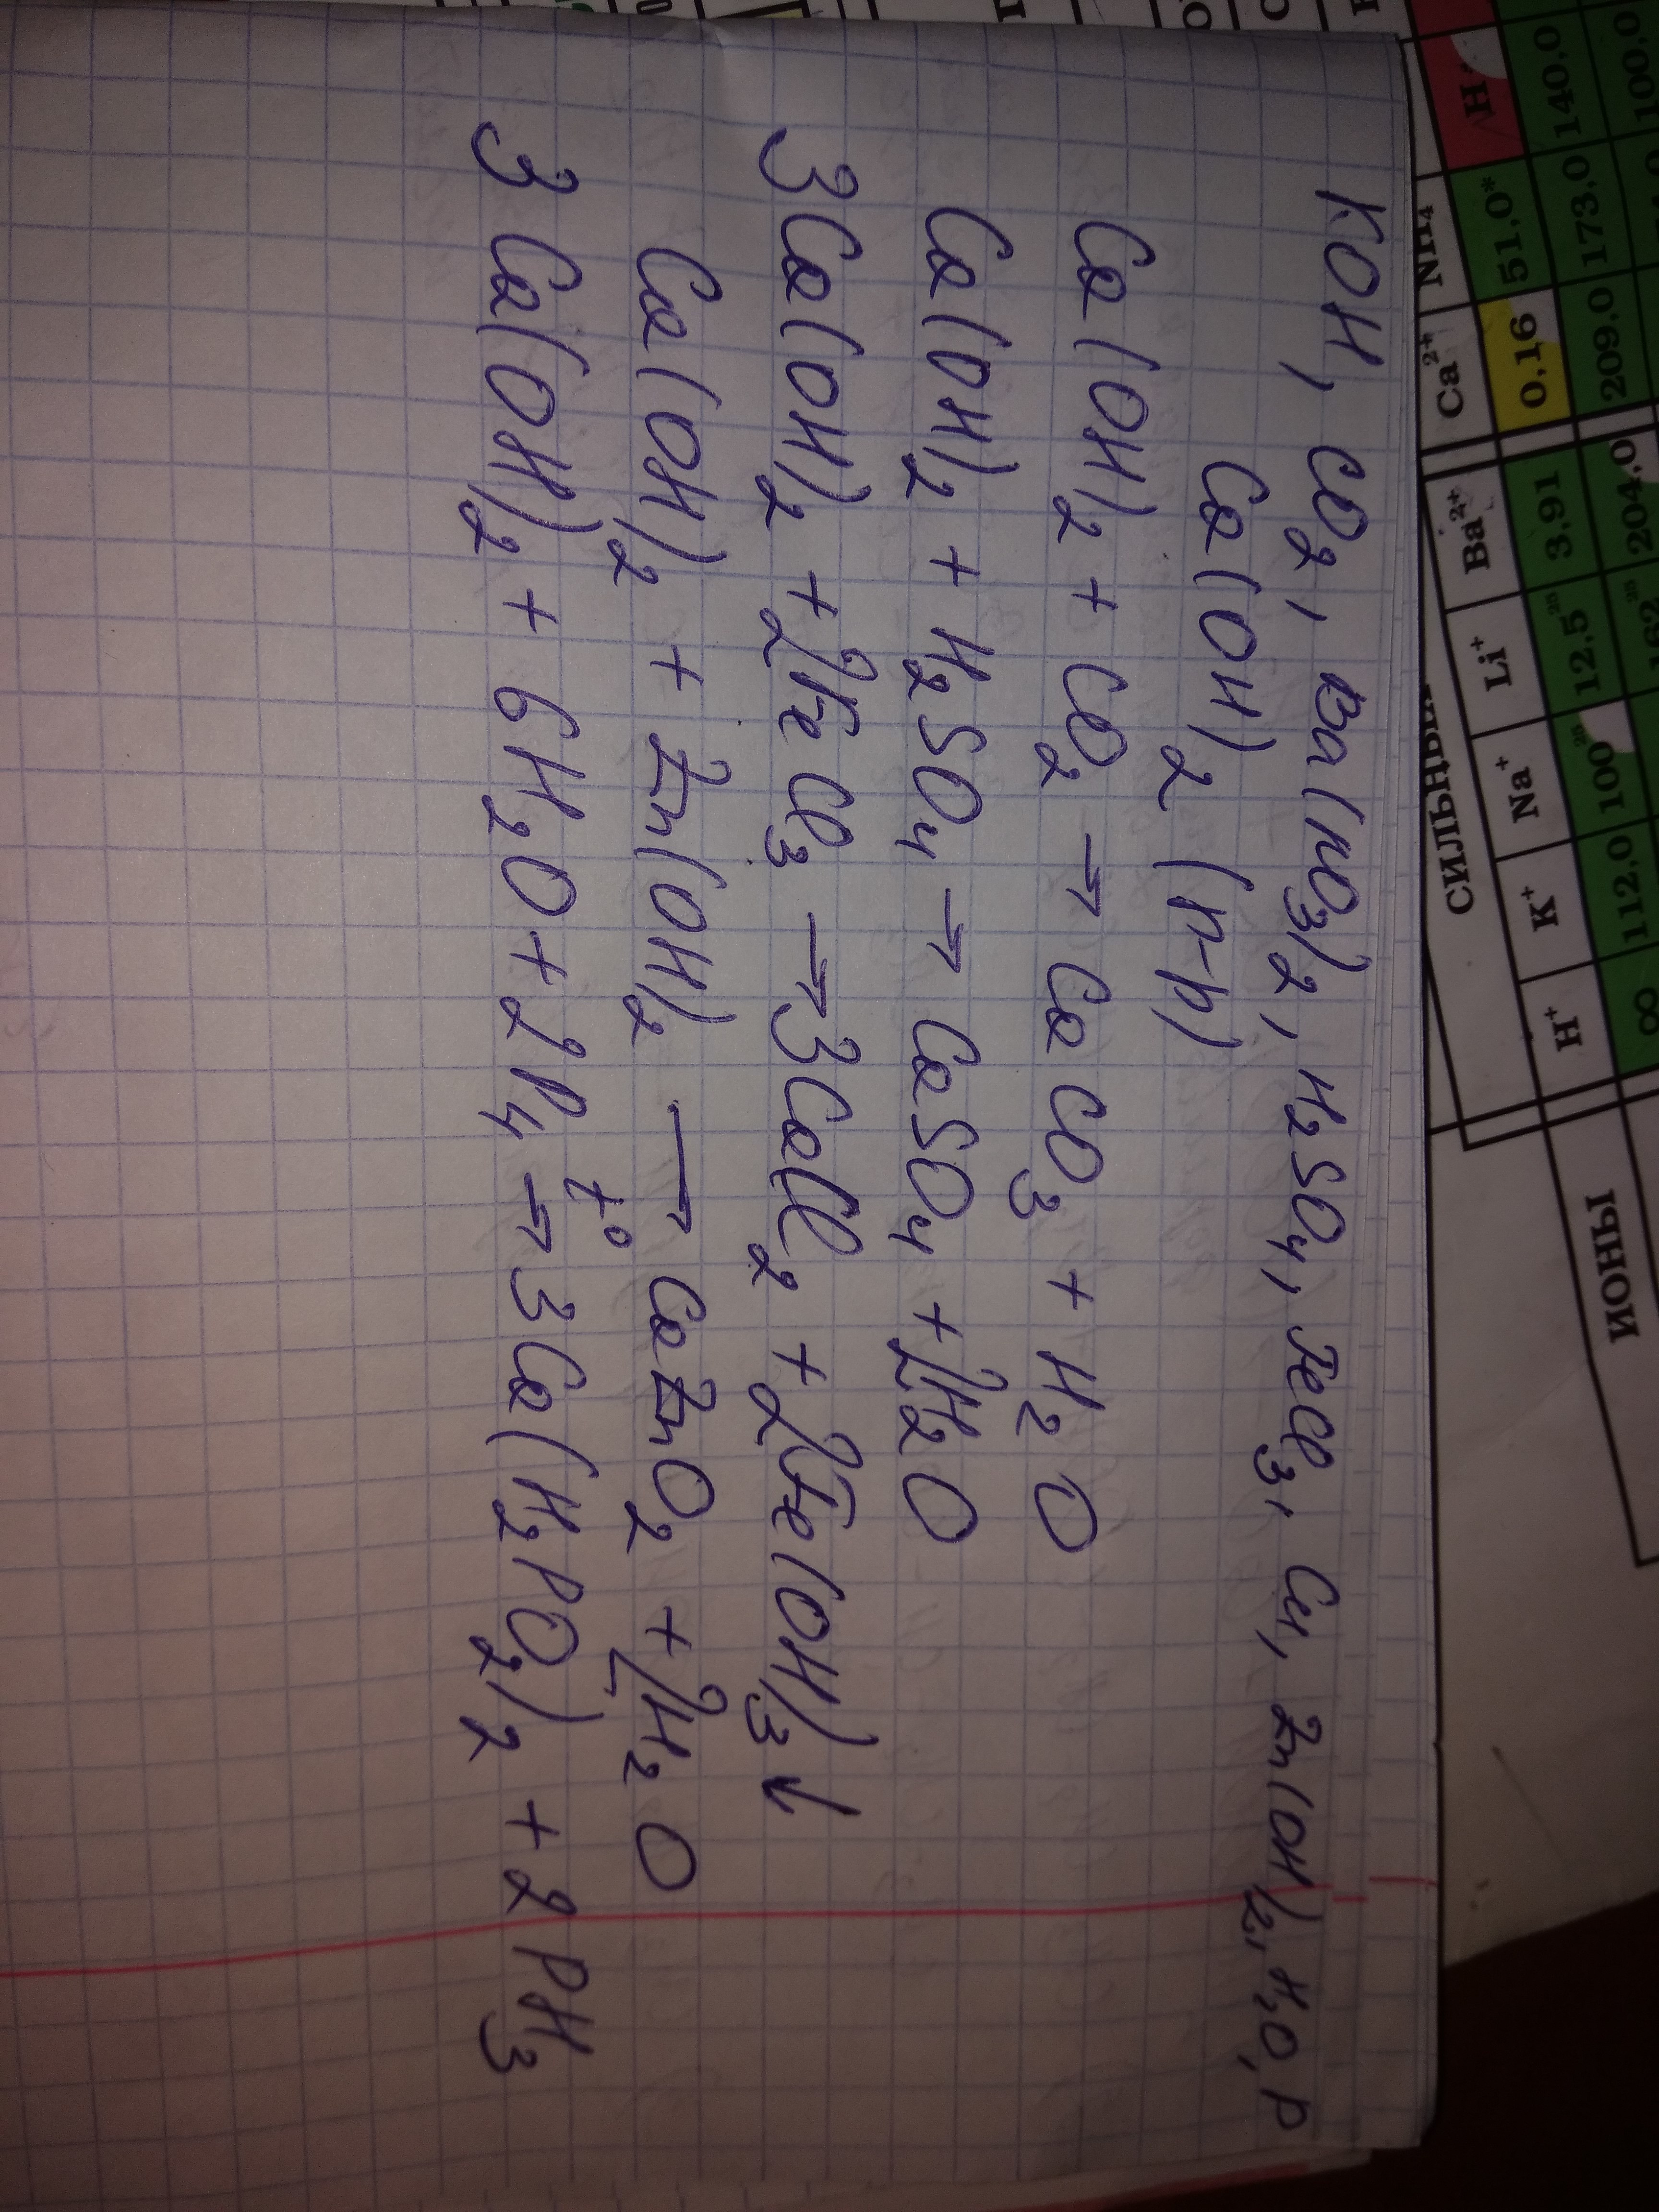 KOH, CO2, Ba(NO3)2, H2SO4, FeCl3, Cu, Zn(OH)2, H2O, P
Ca(OH)2 (р-р)
Ca(OH)2 + CO2 → CaCO3 + H2O
Ca(OH)2 + H2SO4 → CaSO4 + 2H2O
3Ca(OH)2 + 2FeCl3 → 3CaCl2 + 2Fe(OH)3↓
Ca(OH)2 + Zn(OH)2 → CaZnO2 + 2H2O
3Ca(OH)2 + 6H2O + 2P4 t° → 3Ca(H2PO2)2 + 2PH3
ИОНЫ
H+ K+ Na+ Li+ Ba2+ Ca2+
∞ 112,0 100 12.5 3.91 0.16 51.0*
204,0 209.0 173.0 140.0
100.0